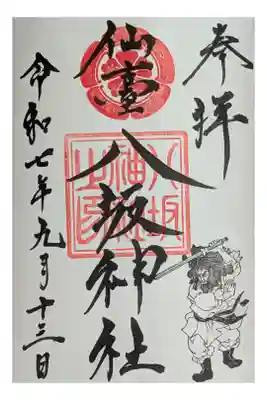 奉拝
仙臺
八坂神社
八坂神社之印
令和七年九月十三日